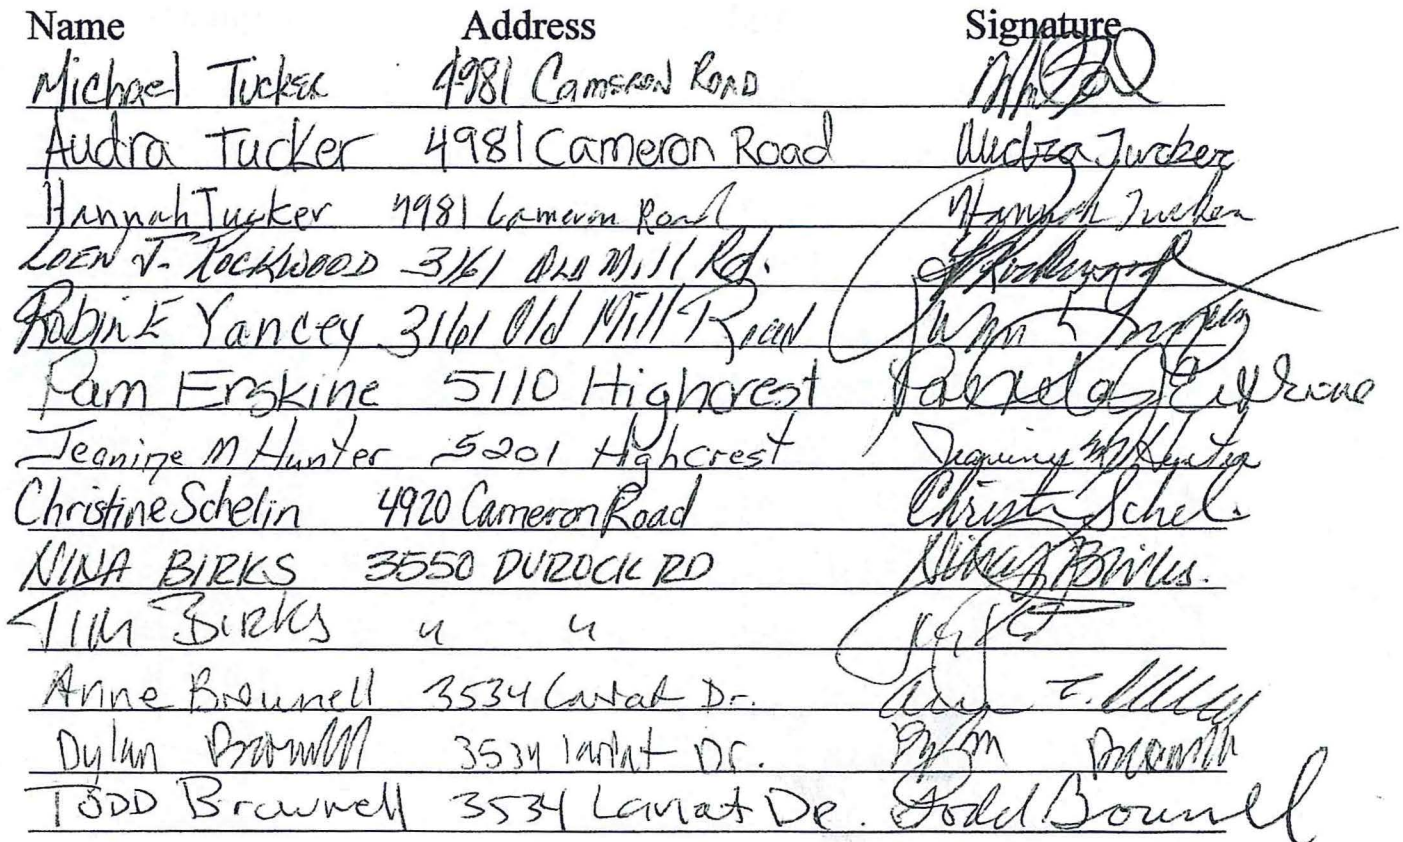 Name Address Signature
Michael Tucker 4981 Cameron Road
Audra Tucker 4981 Cameron Road Audra Tucker
Hannah Tucker 4981 Cameron Road Hannah Tucker
Loen J. Rockwood 3161 Old Mill Rd. Rockwood
Robin E Yancey 3161 Old Mill Road
Pam Erskine 5110 Highcrest Pamela Erskine
Jeanine M Hunter 5201 Highcrest Jeanine M Hunter
Christine Schelin 4920 Cameron Road Christi Schel.
NINA BIRKS 3550 DUROCK RD Nina Birks.
TIM BIRKS " "
Anne Brownell 3534 Lariat Dr.
Dylan Brownell 3534 lariat Dr. Dylan Brownell
TODD Brownell 3534 Lariat Dr. Todd Brownell